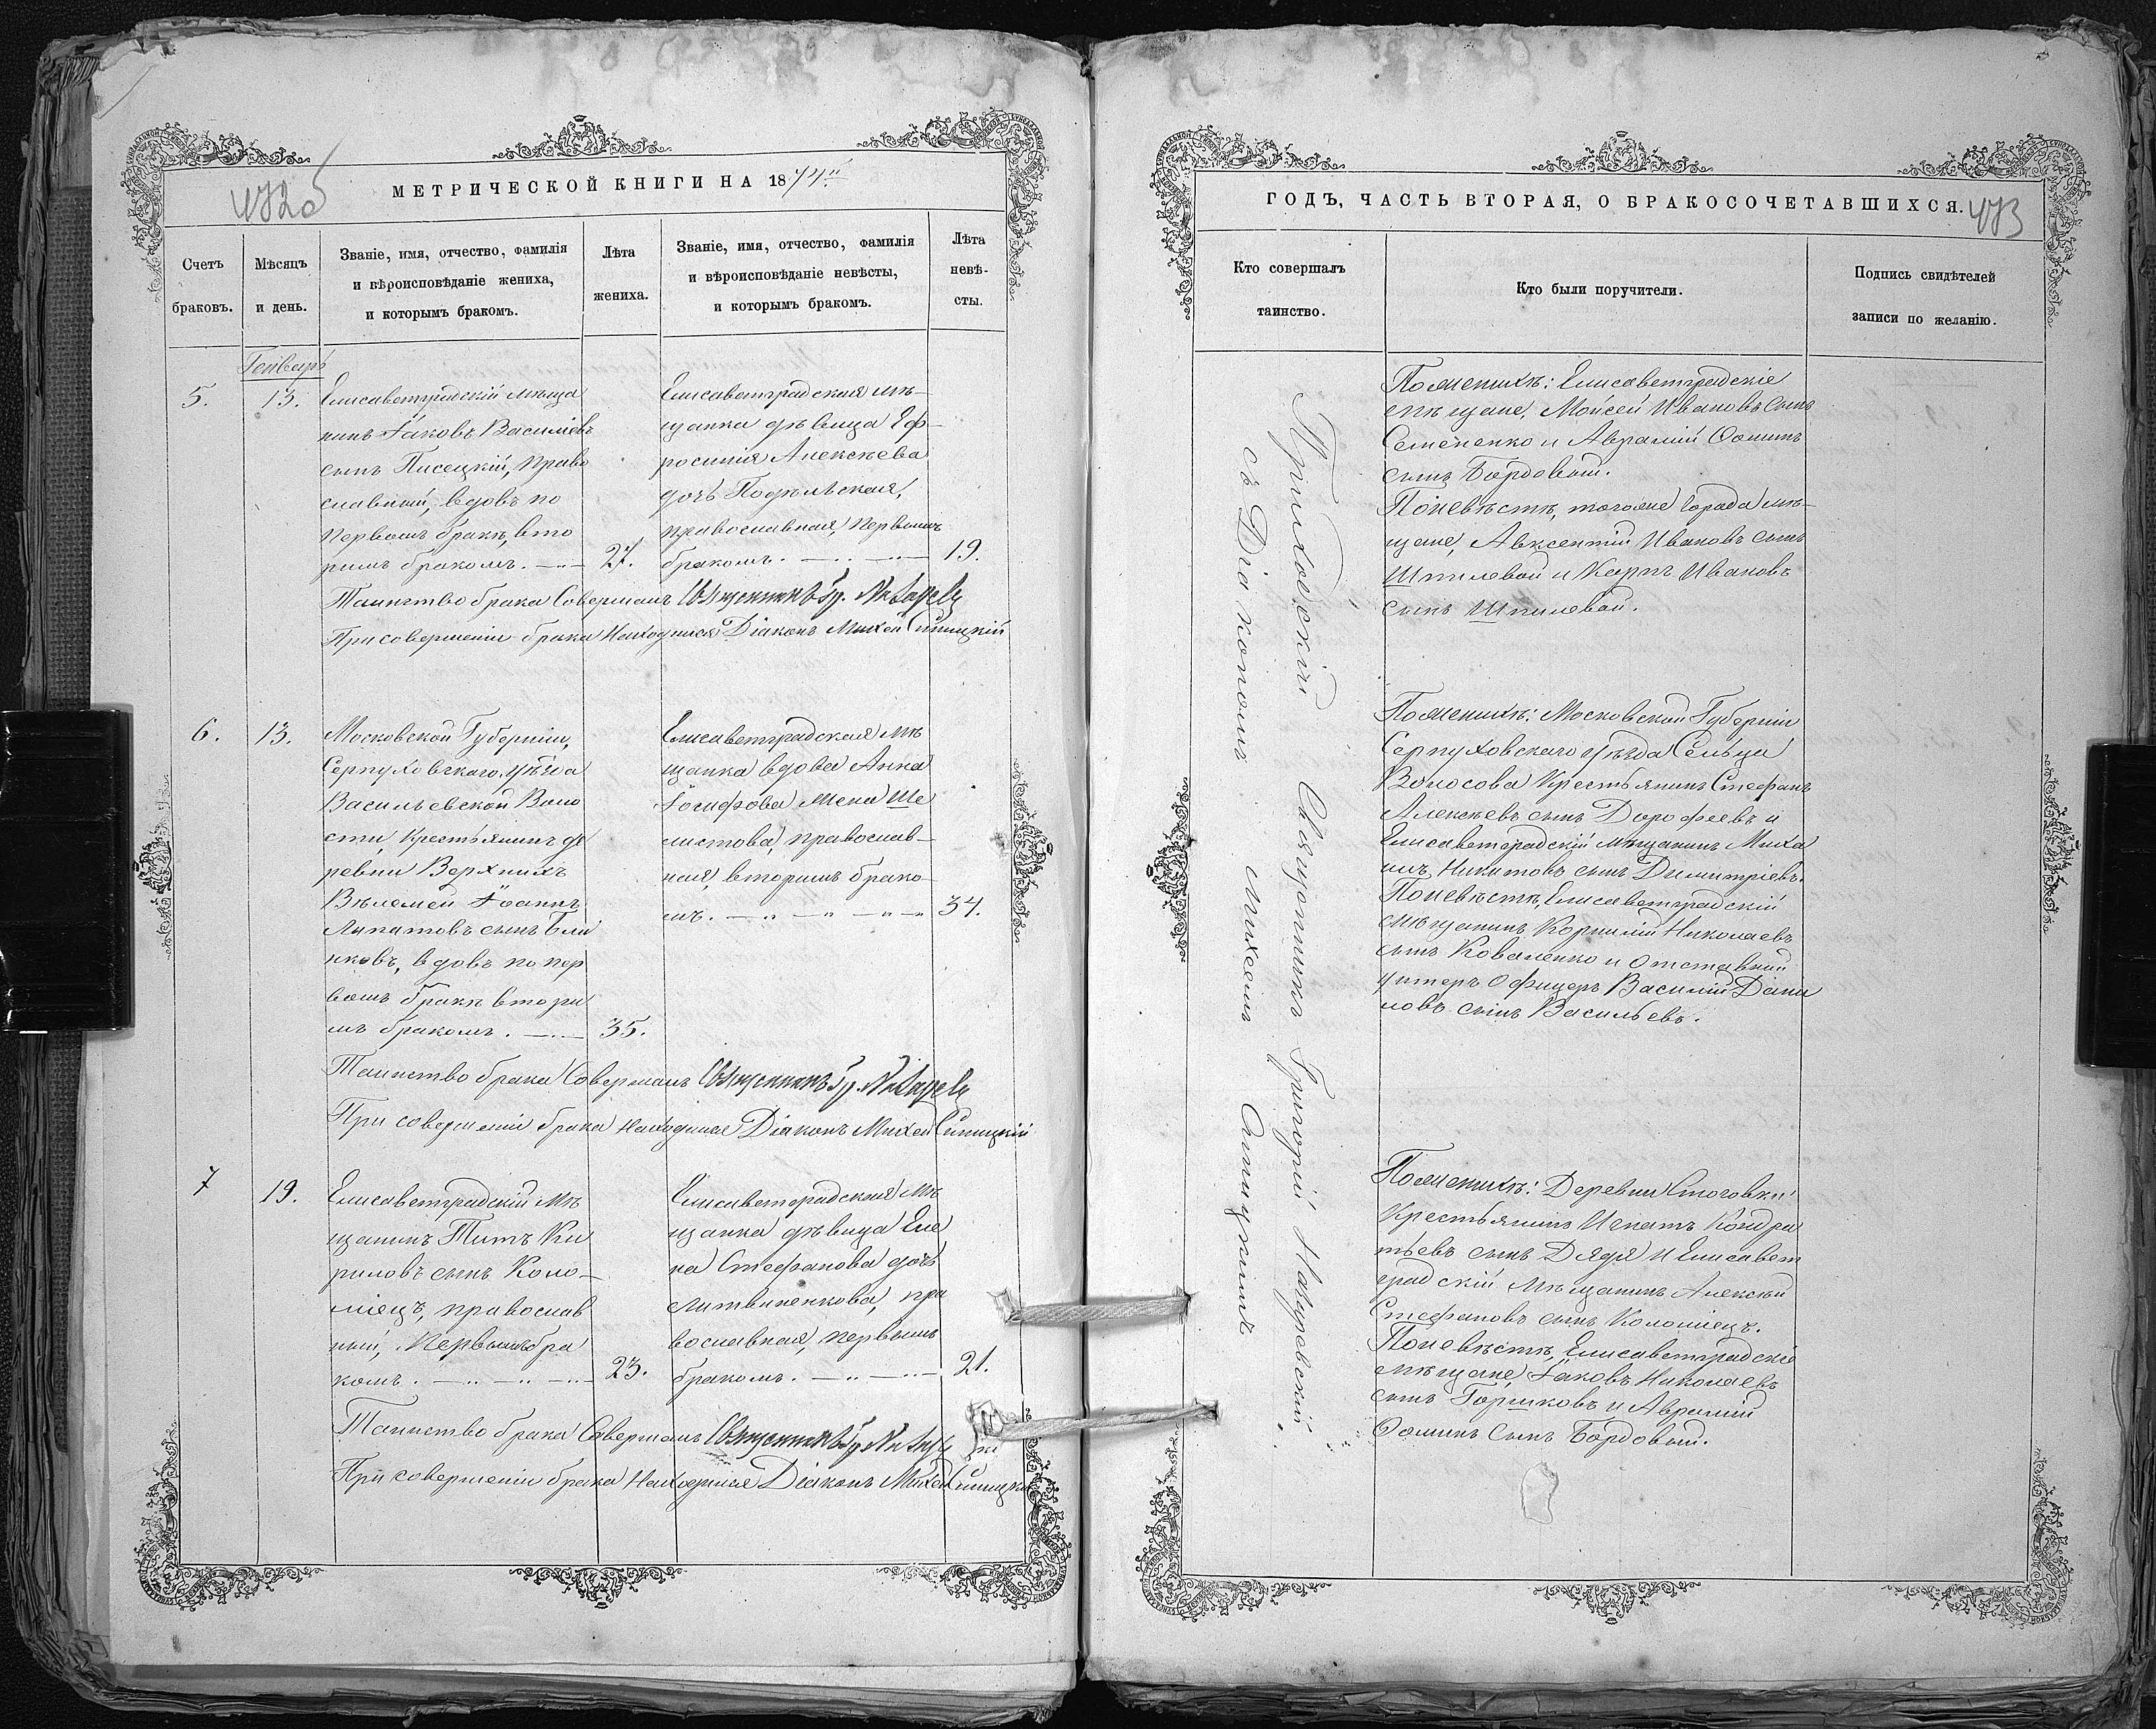 472об
МЕТРИЧЕСКОЙ КНИГИ НА 1874й
Счетъ
браковъ.
Мѣсяцъ
и день.
Званіе, имя, отчество, фамилія
и вѣроисповѣданіе жениха,
и которымъ бракомъ.
Лѣта
жениха.
Званіе, имя, отчество, фамилія
и вѣроисповѣданіе невѣсты,
и которымъ бракомъ.
Лѣта
невѣ-
сты.
Генварь
5.
13.
Елисаветградскій мѣща
нинъ Іаковъ Васильевъ
сынъ Писецкій, право
славный, вдовъ по
первомъ бракѣ, вто
рымъ бракомъ.
27.
Елисаветградская мѣ-
щанка дѣвица Еф-
росинія Алексѣева
дочь Подѣльская,
православная, первымъ
бракомъ.
19.
Таинство брака Совершалъ Священникъ Гр.
При совершеніи брака Находился Діаконъ Михей Синицкій
6.
13.
Московской Губерніи,
Серпуховскаго уѣзда
Васильевской Воло
сти, Крестьянинъ де
ревни Верхнихъ
Вѣлемей Іоаннъ
Лупатовъ сынъ Бли
нковъ, вдовъ по пер
вомъ бракѣ вторы
мъ бракомъ.
35.
Елисаветградская мѣ
щанка вдова Анна
Іосифова жена Ше
листова, православ-
ная, вторымъ брако-
мъ.
34.
Таинство брака Совершалъ Священникъ Гр.
При совершеніи брака находился Діаконъ Михей Синицкій
7
19.
Елисаветградскій мѣ
щанинъ Титъ Ки
риловъ сынъ Коло-
міецъ, православ
ный, первымъ бра
комъ.
23.
Елисаветградская мѣ
щанка дѣвица Еле
на Стефанова дочь
Литвиненкова, пра
вославная, первымъ
бракомъ.
21.
Таинство брака Совершалъ Священникъ Гр.
При совершеніи брака Находился Діаконъ Михей Синицкій
ГОДЪ, ЧАСТЬ ВТОРАЯ, О БРАКОСОЧЕТАВШИХСЯ.
473
Кто совершалъ
таинство.
Кто были поручители.
Подпись свидѣтелей
записи по желанію.
Приходскій Священникъ Григорій
съ Діакономъ Михеемъ Синицкимъ.
По женихѣ: Елисаветградскіе
мѣщане, Мойсей Ивановъ сынъ
Семененко и Аврамій Ѳоминъ
сынъ Бордовый.
По невѣстѣ, тогоже города мѣ-
щане, Авксентій Ивановъ сынъ
Шпилевой и Карпъ Ивановъ
сынъ Шпилевой.
По женихѣ: Московской Губерніи
Серпуховскаго уѣзда Сельца
Волосова Крестьянинъ Стефанъ
Алексѣевъ сынъ Дорофеевъ и
Елисаветградскій мѣщанинъ Миха
илъ Никитовъ сынъ Димитріевъ.
По невѣстѣ, Елисаветградскій
мѣщанинъ Корнилій Николаевъ
сынъ Коваленко и Отставный
унтеръ Офицеръ Василій Дани
ловъ сынъ Васильевъ.
По женихѣ: Деревни Стоговки
Крестьянинъ Игнатъ Кондра
тьевъ сынъ Дядя и Елисавет
градскій мѣщанинъ Алексѣй
Стефановъ сынъ Коломіецъ.
По невѣстѣ, Елисаветградскіе
мѣщане, Іаковъ Николаевъ
сынъ Горшковъ и Аврамій
Ѳоминъ Сынъ Бордовый.